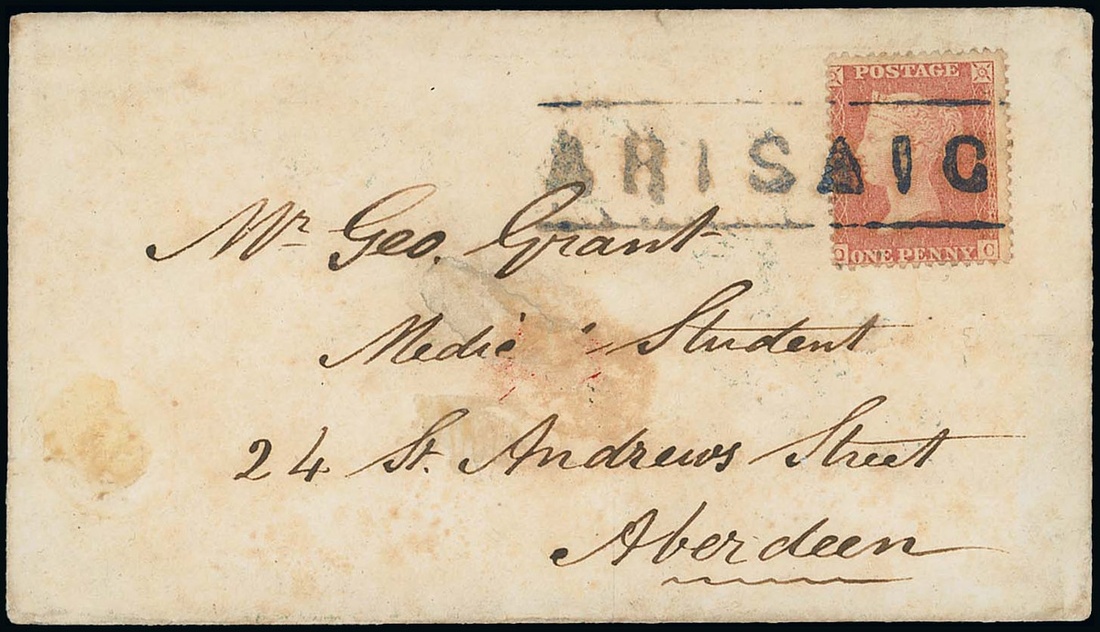 POSTAGE
ARISAIG
ONE PENNY C
Mr Geo. Grant
Student
24 St. Andrews Street
Aberdeen